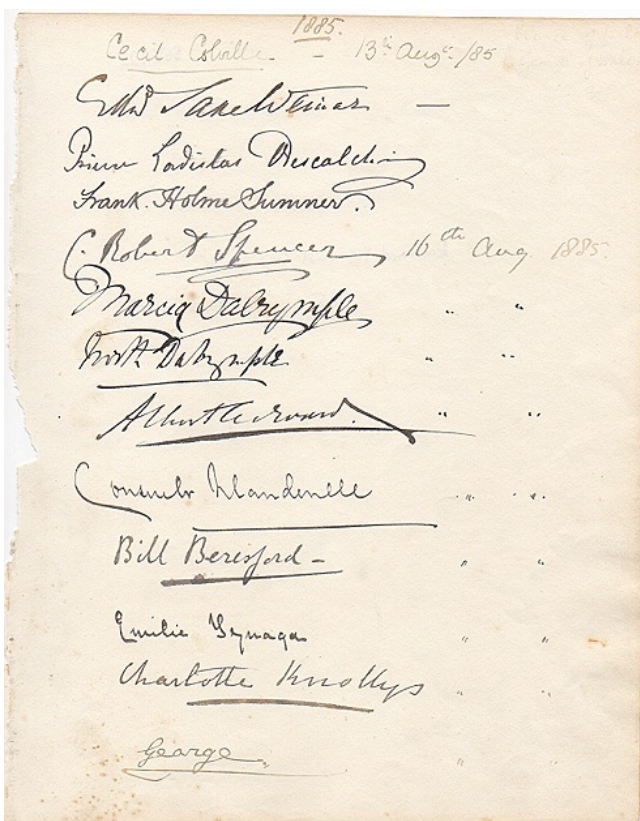 1885.
Cecil Colville - 13th Augst /85
Edwd Saxe Weimar —
Prince Ladislas Odescalchi
Frank. Holme Sumner.
C. Robert Spencer 16th Aug 1885.
Marcia Dalrymple " "
North Dalrymple " "
Albert Edward. " "
Consuelo Mandeville " "
Bill Beresford - " "
Emilie Yznaga " "
Charlotte Knollys " "
George " "